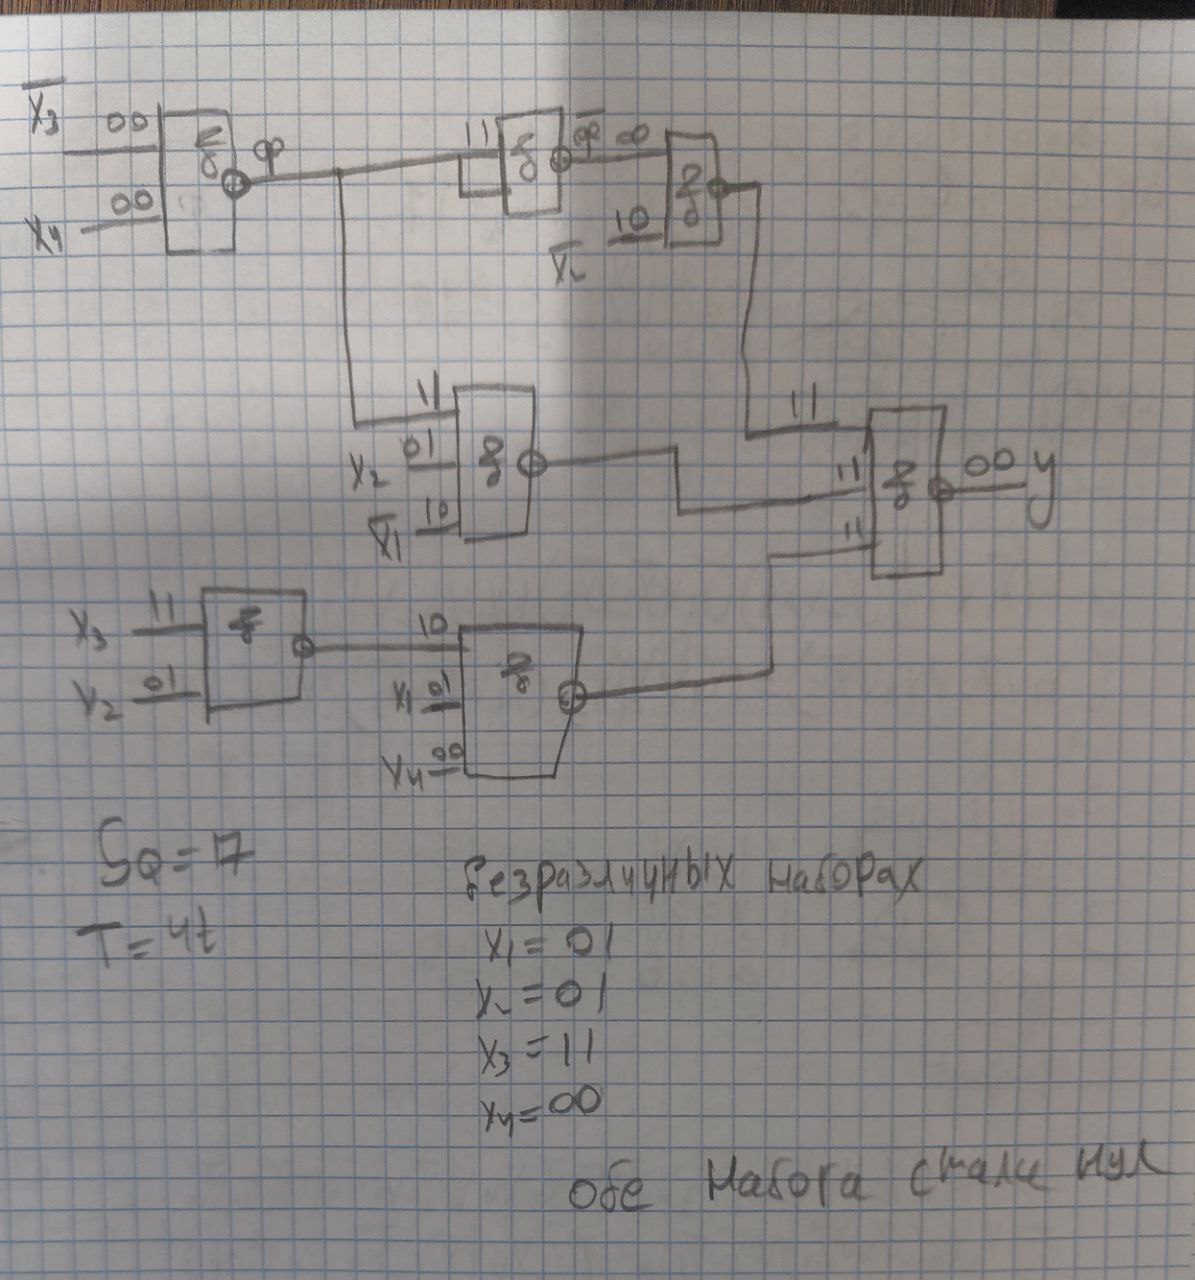 X̅3 00 & φ 11 & φ̅ 00 &
X4 00 10
X̅2
11 11
X2 01 & 11 & 00 y
X̅1 10 11
X3 11 & 10 &
X2 01 X1 01
X4 00
SQ = 17
T = 4t
безразличных наборах
X1 = 01
X2 = 01
X3 = 11
X4 = 00
обе набора стали нул